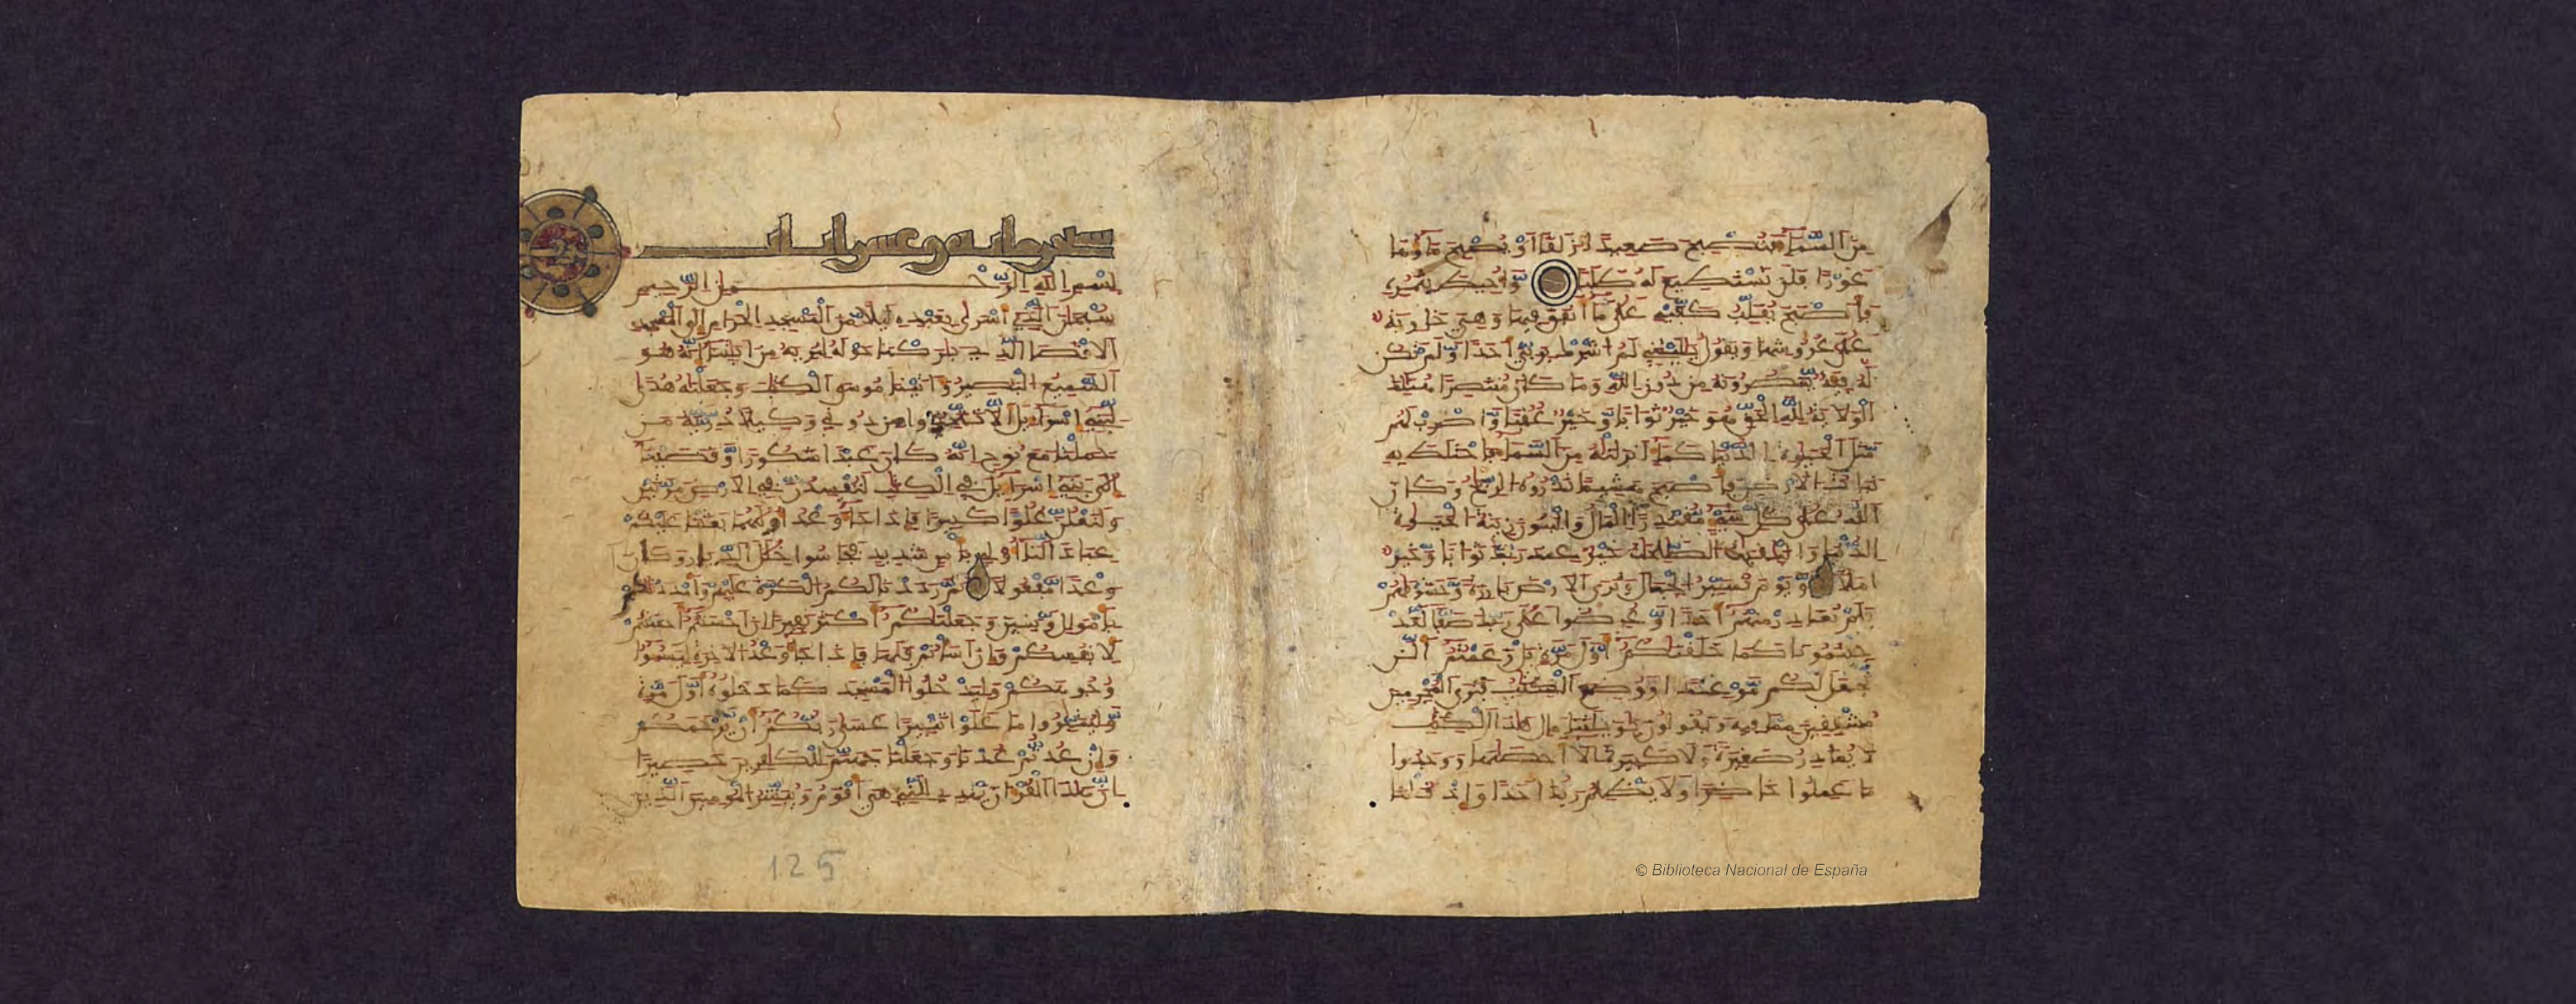 من السما فتصبح صعيدا زلقا او يصبح ماوها
غورا فلن تستطيع له طلبا واحيط بثمره
فاصبح يقلب كفيه على ما انفق فيها وهي خاوية
على عروشها ويقول يليتني لم اشرك بربي احدا ولم تكن
له فئة ينصرونه من دون الله وما كان منتصرا هنالك
الولاية لله الحق هو خير ثوابا وخير عقبا واضرب لهم
مثل الحيوة الدنيا كما انزلنه من السما فاختلط به
نبات الارض فاصبح هشيما تذروه الريح وكان
الله على كل شي مقتدرا المال والبنون زينة الحيوة
الدنيا والبقيت الصلحت خير عند ربك ثوابا وخير
املا ويوم نسير الجبال وترى الارض بارزة وحشرنهم
فلم نغادر منهم احدا وعرضوا على ربك صفا لقد
جئتمونا كما خلقنكم اول مرة بل زعمتم الن
نجعل لكم موعدا ووضع الكتب فترى المجرمين
مشفقين مما فيه ويقولون يويلتنا مال هذا الكتب
لا يغادر صغيرة ولا كبيرة الا احصها ووجدوا
ما عملوا حاضرا ولا يظلم ربك احدا واذ قلنا
مايه وعشر ايات
بسم الله الرحمن الرحيم
سبحن الذي اسرى بعبده ليلا من المسجد الحرام الى المسجد
الاقصا الذي بركنا حوله لنريه من ايتنا انه هو
السميع البصير واتينا موسى الكتب وجعلنه هدى
لبني اسرايل الا تتخذوا من دوني وكيلا ذرية من
حملنا مع نوح انه كان عبدا شكورا وقضينا
الى بني اسرايل في الكتب لتفسدن في الارض مرتين
ولتعلن علوا كبيرا فاذا جا وعد اولهما بعثنا عليكم
عبادا لنا اولي باس شديد فجاسوا خلل الديار وكان
وعدا مفعولا ثم رددنا لكم الكرة عليهم وامددنكم
باموال وبنين وجعلنكم اكثر نفيرا ان احسنتم احسنتم
لانفسكم وان اساتم فلها فاذا جا وعد الاخرة ليسوا
وجوهكم وليدخلوا المسجد كما دخلوه اول مرة
وليتبروا ما علوا تتبيرا عسى ربكم ان يرحمكم
وان عدتم عدنا وجعلنا جهنم للكفرين حصيرا
ان هذا القران يهدي للتي هي اقوم ويبشر المومنين الذين
125
© Biblioteca Nacional de España